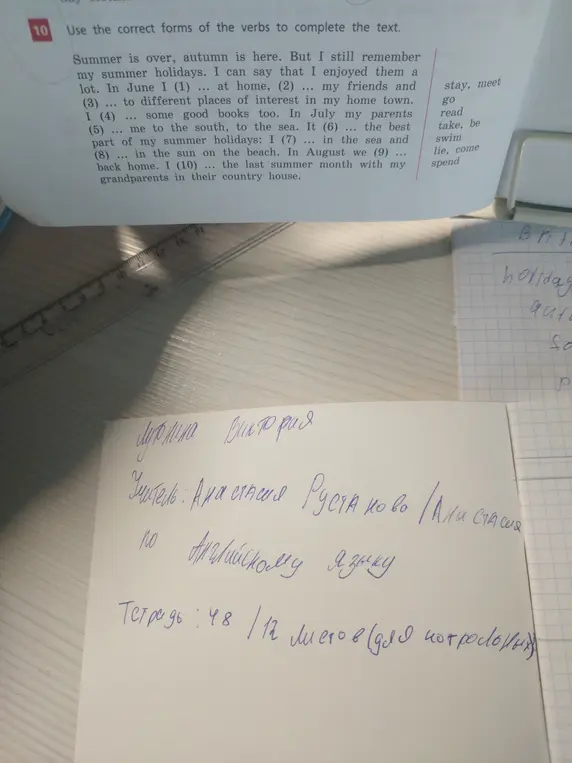 10 Use the correct forms of the verbs to complete the text.
Summer is over, autumn is here. But I still remember
my summer holidays. I can say that I enjoyed them a
lot. In June I (1) ... at home, (2) ... my friends and
(3) ... to different places of interest in my home town.
I (4) ... some good books too. In July my parents
(5) ... me to the south, to the sea. It (6) ... the best
part of my summer holidays: I (7) ... in the sea and
(8) ... in the sun on the beach. In August we (9) ...
back home. I (10) ... the last summer month with my
grandparents in their country house.
stay, meet
go
read
take, be
swim
lie, come
spend
Виктория
Учитель: Анастасия Рустановo / Анастасия
по Английскому языку
Тетрадь: 48 / 12 листов (для